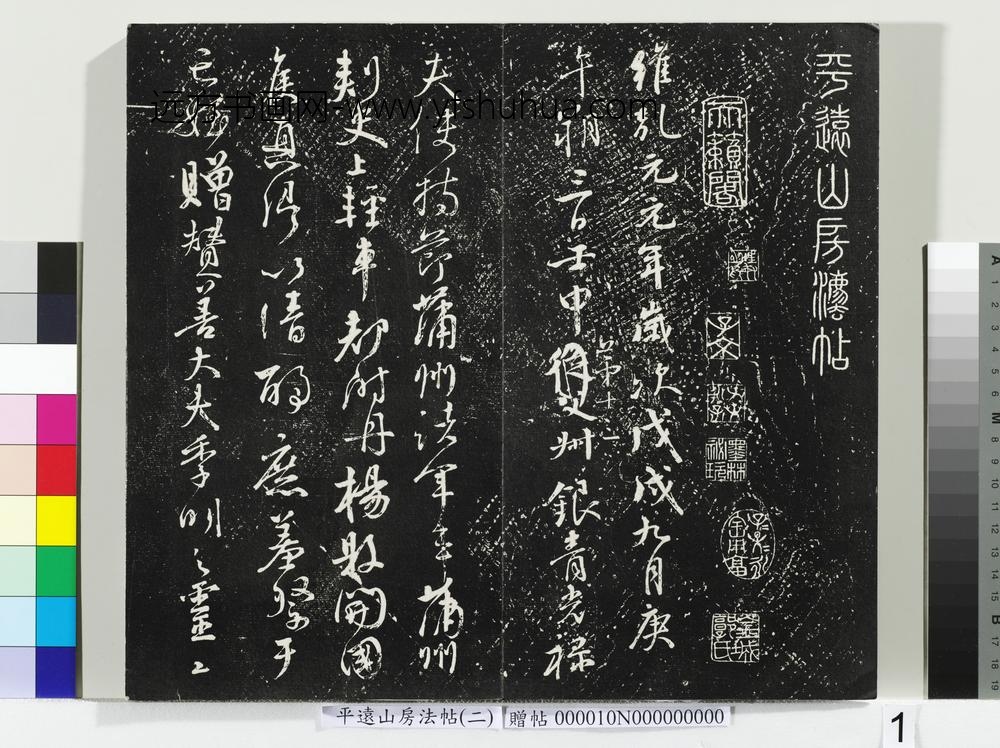 平遠山房法帖
天籟閣
子京
墨林
維乾元元年歲次戊戌九月庚
午朔三日壬申第十一
姪男銀青光祿
夫使持節蒲州諸軍事蒲州
刺史上輕車都尉丹楊縣開國
侯真卿以清酌庶羞祭于
亡姪贈贊善大夫季明之靈
远方书画网-www.yfshuhua.com
平遠山房法帖(二)
贈帖 000010N000000000
1
A 1 2 3 4 5 6 M 8 9 10 11 12 13 14 15 B 17 18 19